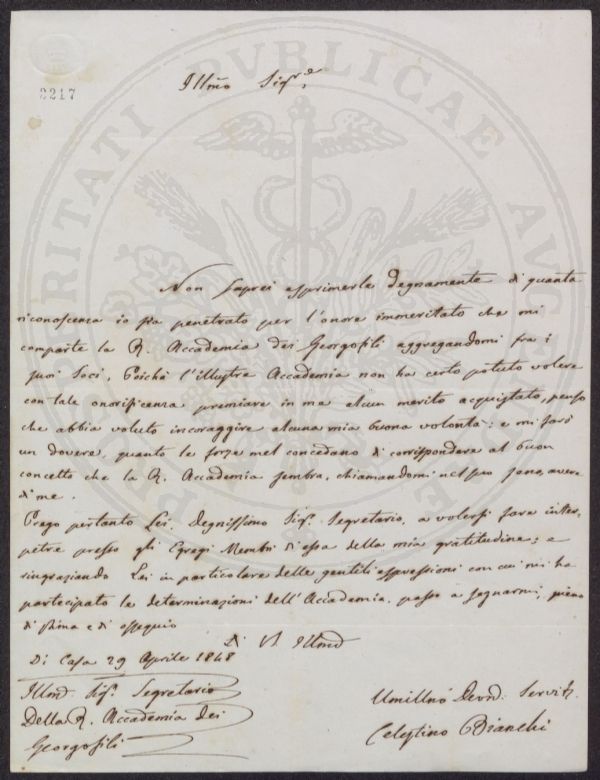 2217
Illmo Sigr.
Non saprei esprimerle degnamente di quanta
riconoscenza io sia penetrato per l'onore immeritato che mi
comparte la R. Accademia dei Georgofili aggregandomi fra i
suoi Soci. Poichè l'illustre Accademia non ha certo potuto volere
con tale onorificenza premiare in me alcun merito acquistato, penso
che abbia voluto incoraggire alcuna mia buona volontà: e mi farò
un dovere, quanto le forze mel concedano di corrispondere al buon
concetto che la R. Accademia sembra, chiamandomi nel suo seno, avere
di me.
Prego pertanto Lei, Degnissimo Sigr. Segretario, a volersi fare inter-
petre presso gli Egregi Membri d'essa della mia gratitudine: e
ringraziando Lei in particolare delle gentili espressioni con cui mi ha
partecipato le determinazioni dell'Accademia, passo a segnarmi, pieno
di stima e di ossequio
Di V. Illma
Di Casa 29 Aprile 1848
Illmo. Sigr. Segretario
Della R. Accademia dei
Georgofili
Umillmo Devmo. Servitr.
Celestino Bianchi
PROSPERITATI PVBLICAE AVGENDAE